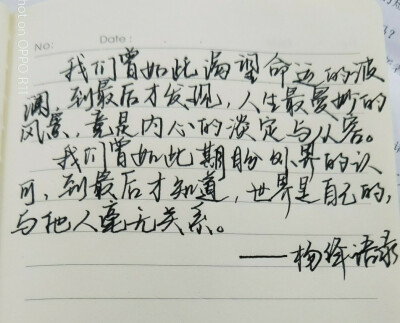 Shot on OPPO R11
No:          Date:
我们曾如此渴望命运的波
澜，到最后才发现，人生最曼妙的
风景，竟是内心的淡定与从容。
我们曾如此期盼外界的认
可，到最后才知道，世界是自己的，
与他人毫无关系。
——杨绛语录